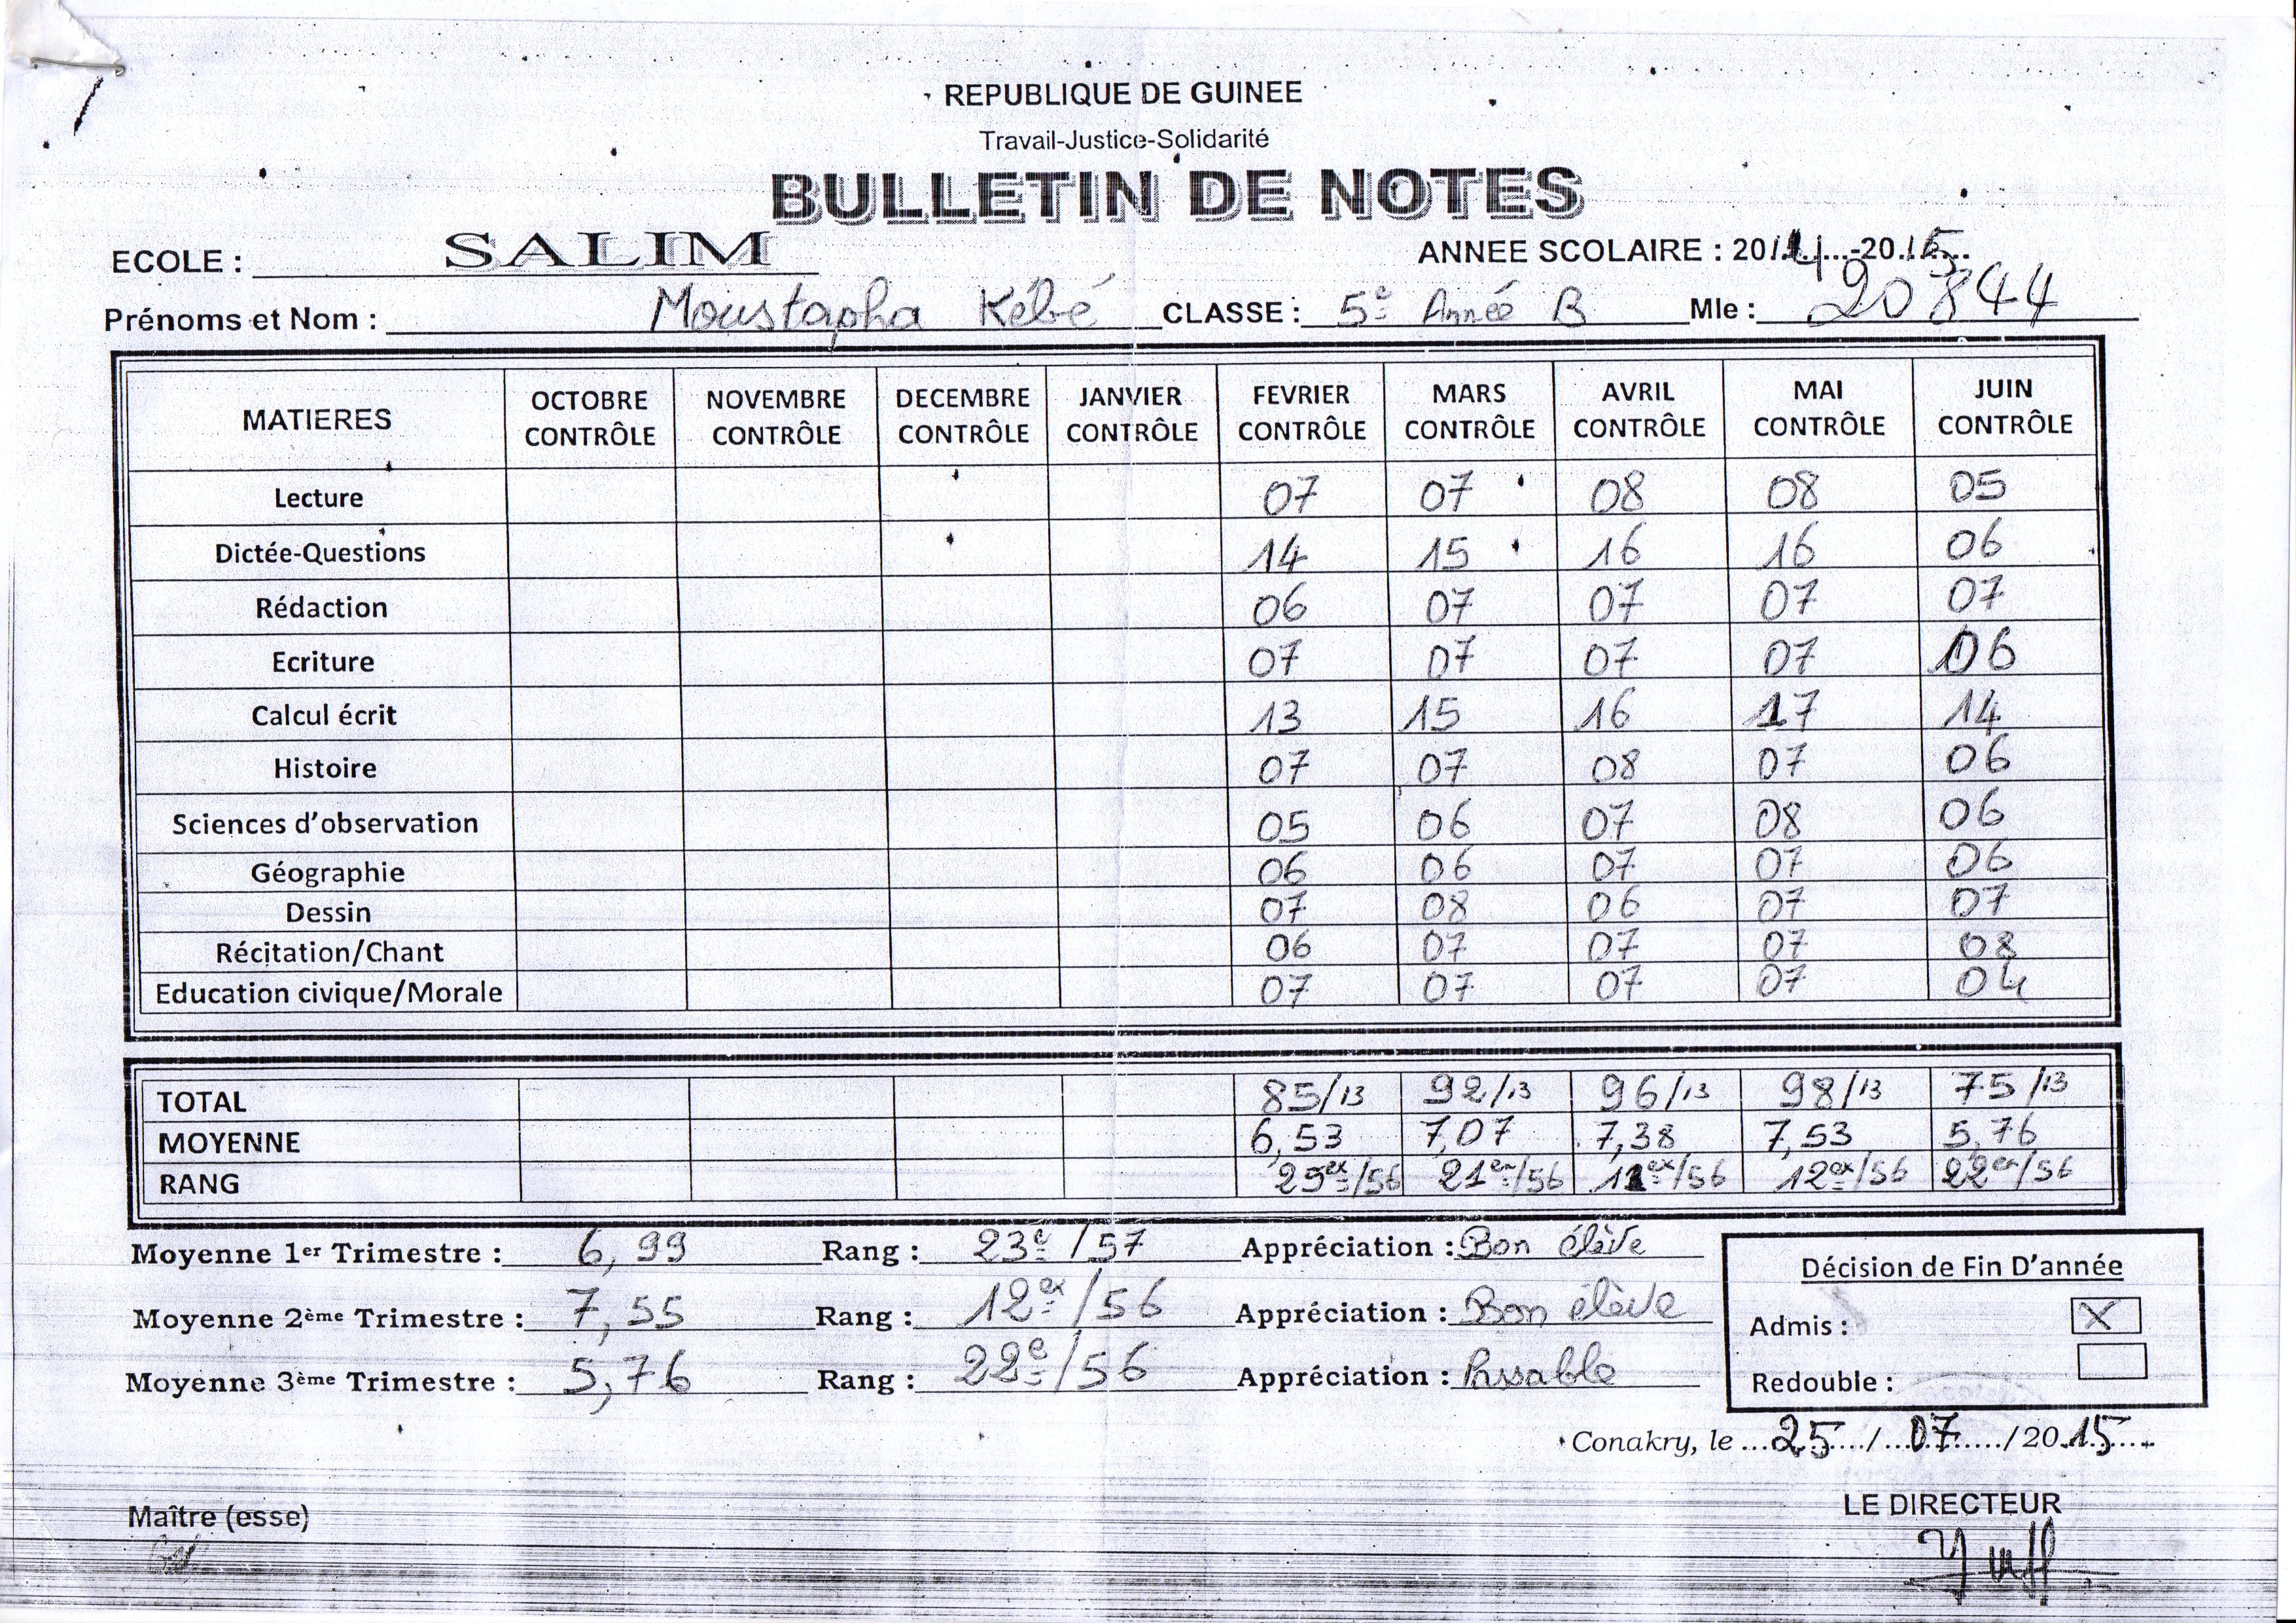 REPUBLIQUE DE GUINEE
Travail-Justice-Solidarité
BULLETIN DE NOTES
ECOLE : SALIM ANNEE SCOLAIRE : 2014-2015
Prénoms et Nom : Moustapha Kébé CLASSE : 5e Année B Mle : 20844
MATIERES OCTOBRE CONTRÔLE NOVEMBRE CONTRÔLE DECEMBRE CONTRÔLE JANVIER CONTRÔLE FEVRIER CONTRÔLE MARS CONTRÔLE AVRIL CONTRÔLE MAI CONTRÔLE JUIN CONTRÔLE
Lecture 07 07 08 08 05
Dictée-Questions 14 15 16 16 06
Rédaction 06 07 07 07 07
Ecriture 07 07 07 07 06
Calcul écrit 13 15 16 17 14
Histoire 07 07 08 07 06
Sciences d'observation 05 06 07 08 06
Géographie 06 06 07 07 06
Dessin 07 08 06 07 07
Récitation/Chant 06 07 07 07 08
Education civique/Morale 07 07 07 07 04
TOTAL 85/13 92/13 96/13 98/13 75/13
MOYENNE 6,53 7,07 7,38 7,53 5,76
RANG 25ex/56 21ex/56 11ex/56 12ex/56 22ex/56
Moyenne 1er Trimestre : 6,99 Rang : 23e/57 Appréciation : Bon élève
Moyenne 2ème Trimestre : 7,55 Rang : 12ex/56 Appréciation : Bon élève
Moyenne 3ème Trimestre : 5,76 Rang : 22e/56 Appréciation : Passable
Décision de Fin D'année
Admis : X
Redouble :
Conakry, le 25/07/2015
Maître (esse)
LE DIRECTEUR